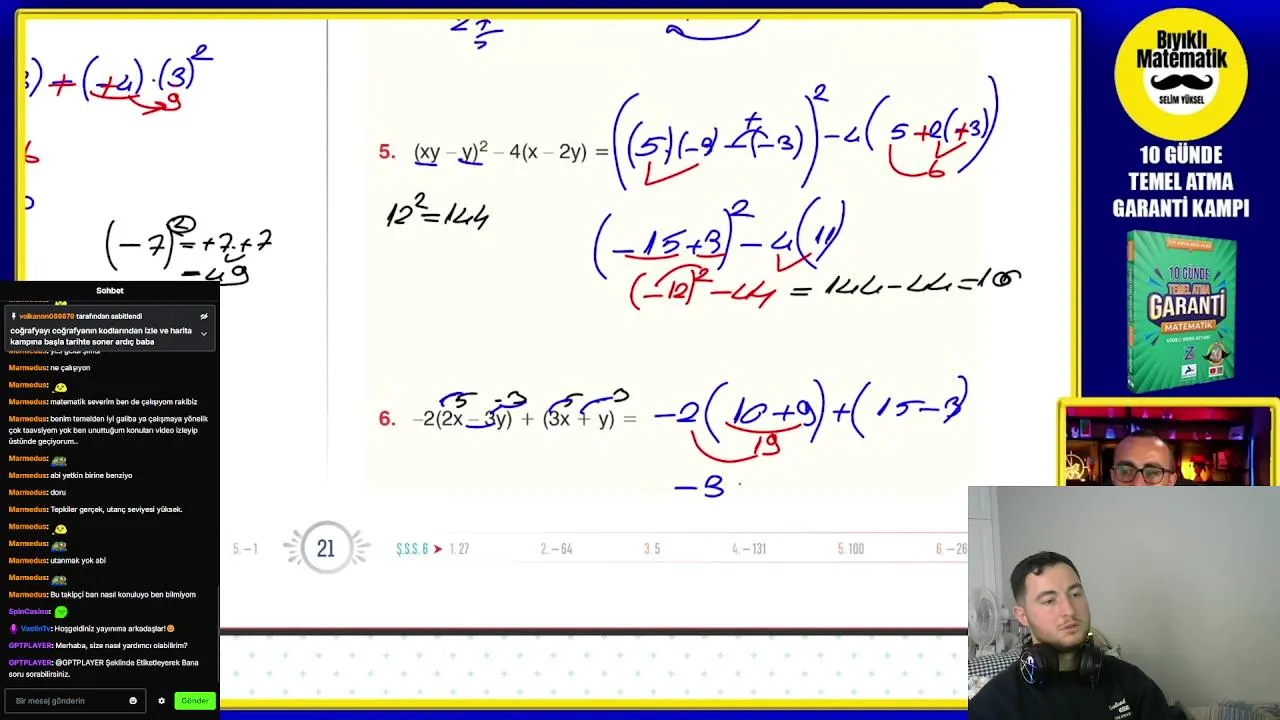 ) + (+4) · (3)²
9
6
(-7)² = +7 · +7
- 49
5. (xy – y)² – 4(x – 2y) = ((5)(-3) - (-3))² - 4(5+2(+3))
+
6
12² = 144
(-15+3)² - 4(11)
(-12)² - 44 = 144 - 44 = 100
5 -3 5 -3
6. –2(2x – 3y) + (3x + y) = -2(10+9) + (15-3)
19
-3
5. –1
21
Ş.S.S. 6 ➤ 1. 27 2. –64 3. 5 4. –131 5. 100 6. –26
Bıyıklı
Matematik
SELİM YÜKSEL
10 GÜNDE
TEMEL ATMA
GARANTİ KAMPI
10 GÜNDE
TEMEL ATMA
GARANTİ
MATEMATİK
VİDEO DERS KİTABI
Sohbet
Marmedus:
volkannn089879 tarafından sabitlendi
coğrafyayı coğrafyanın kodlarından izle ve harita
kampına başla tarihte soner ardıç baba
Marmedus: ne çalışıyon
Marmedus:
Marmedus: matematik severim ben de çalışıyom rakibiz
Marmedus: benim temelden iyi galiba ya çalışmaya yönelik
çok taavsiyem yok ben unuttuğum konuları video izleyip
üstünde geçiyorum..
Marmedus:
Marmedus: abi yetkin birine benziyo
Marmedus: doru
Marmedus: Tepkiler gerçek, utanç seviyesi yüksek.
Marmedus:
Marmedus:
Marmedus: utanmak yok abi
Marmedus:
Marmedus: Bu takipçi ban nasıl konuluyo ben bilmiyom
SpinCasino:
VaelinTv: Hoşgeldiniz yayınıma arkadaşlar!
GPTPLAYER: Merhaba, size nasıl yardımcı olabilirim?
GPTPLAYER: @GPTPLAYER Şeklinde Etiketleyerek Bana
soru sorabilirsiniz.
Bir mesaj gönderin
Gönder